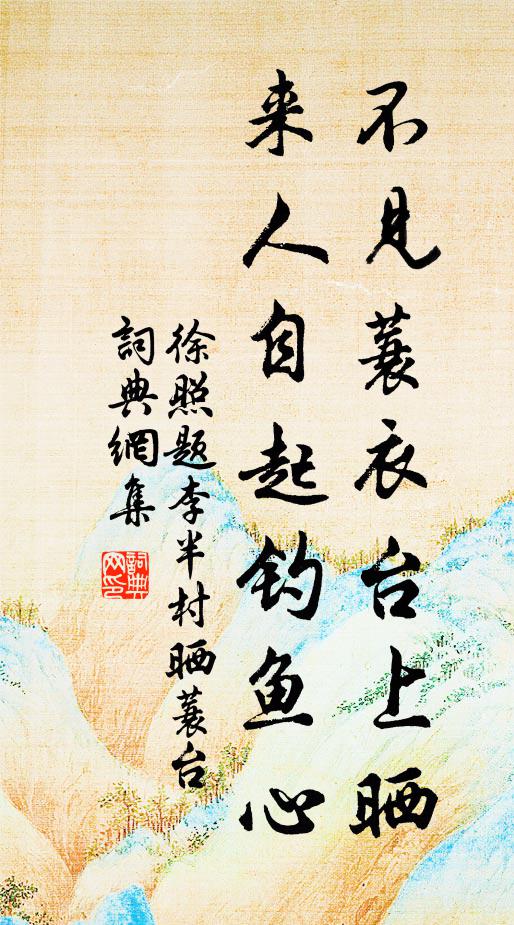 不见蓑衣台上晒
来人自起钓鱼心
徐照题李半村晒蓑台
詞典網集
詞典网印